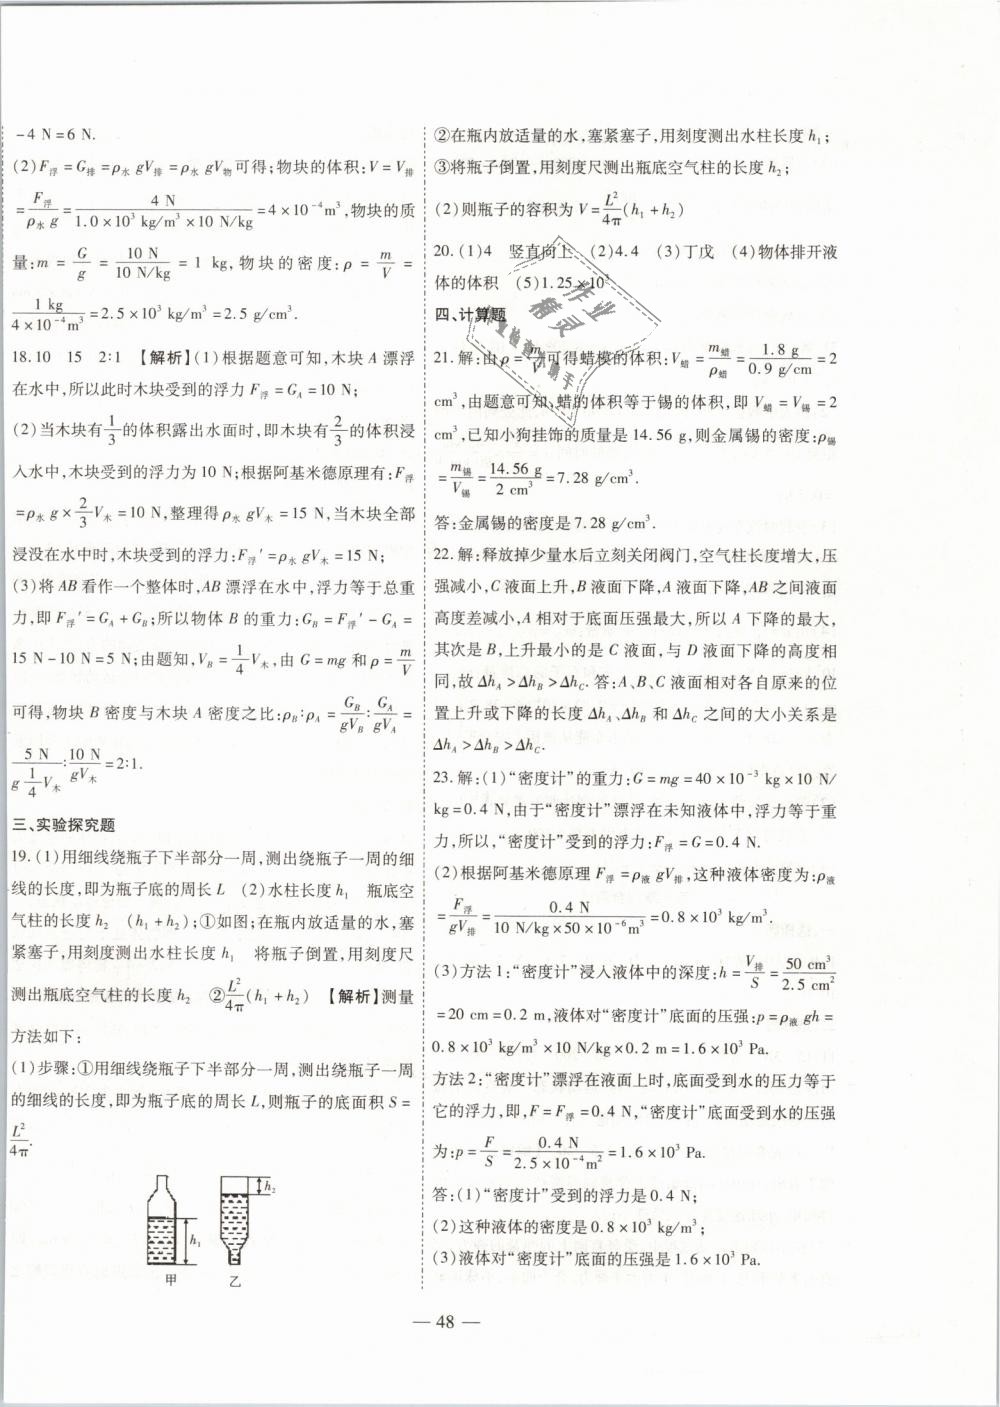 -4 N=6 N.
(2)F浮=G排=ρ水 gV排=ρ水 gV物可得;物块的体积:V=V排
=F浮/(ρ水 g)=4 N/(1.0×10³ kg/m³×10 N/kg)=4×10⁻⁴m³,物块的质
量:m=G/g=10 N/(10 N/kg)=1 kg,物块的密度:ρ=m/V=
1 kg/(4×10⁻⁴m³)=2.5×10³ kg/m³=2.5 g/cm³.
18.10 15 2:1 【解析】(1)根据题意可知,木块 A 漂浮
在水中,所以此时木块受到的浮力 F浮=G_A=10 N;
(2)当木块有1/3的体积露出水面时,即木块有2/3的体积浸
入水中,木块受到的浮力为10 N;根据阿基米德原理有:F浮
=ρ水 g×2/3V木=10 N,整理得ρ水 gV木=15 N,当木块全部
浸没在水中时,木块受到的浮力:F浮′=ρ水 gV木=15 N;
(3)将 AB 看作一个整体时,AB 漂浮在水中,浮力等于总重
力,即 F浮′=G_A+G_B;所以物体 B 的重力:G_B=F浮′-G_A=
15 N-10 N=5 N;由题知,V_B=1/4V木,由 G=mg 和 ρ=m/V
可得,物块 B 密度与木块 A 密度之比:ρ_B:ρ_A=G_B/(gV_B):G_A/(gV_A)=
5 N/(g 1/4V木):10 N/(gV木)=2:1.
三、实验探究题
19.(1)用细线绕瓶子下半部分一周,测出绕瓶子一周的细
线的长度,即为瓶子底的周长 L (2)水柱长度 h₁ 瓶底空
气柱的长度 h₂ (h₁+h₂);①如图;在瓶内放适量的水,塞
紧塞子,用刻度测出水柱长度 h₁ 将瓶子倒置,用刻度尺
测出瓶底空气柱的长度 h₂ ②L²/4π(h₁+h₂) 【解析】测量
方法如下:
(1)步骤:①用细线绕瓶子下半部分一周,测出绕瓶子一周
的细线的长度,即为瓶子底的周长 L,则瓶子的底面积 S=
L²/4π.
h₁
h₂
甲 乙
②在瓶内放适量的水,塞紧塞子,用刻度测出水柱长度 h₁;
③将瓶子倒置,用刻度尺测出瓶底空气柱的长度 h₂;
(2)则瓶子的容积为 V=L²/4π(h₁+h₂)
20.(1)4 竖直向上 (2)4.4 (3)丁戊 (4)物体排开液
体的体积 (5)1.25×10³
四、计算题
21.解:由ρ=m/V可得蜡模的体积:V蜡=m蜡/ρ蜡=1.8 g/(0.9 g/cm)=2
cm³,由题意可知,蜡的体积等于锡的体积,即 V蜡=V锡=2
cm³,已知小狗挂饰的质量是14.56 g,则金属锡的密度:ρ锡
=m锡/V锡=14.56 g/(2 cm³)=7.28 g/cm³.
答:金属锡的密度是7.28 g/cm³.
22.解:释放掉少量水后立刻关闭阀门,空气柱长度增大,压
强减小,C 液面上升,B 液面下降,A 液面下降,AB 之间液面
高度差减小,A 相对于底面压强最大,所以 A 下降的最大,
其次是 B,上升最小的是 C 液面,与 D 液面下降的高度相
同,故 Δh_A>Δh_B>Δh_C.答:A、B、C 液面相对各自原来的位
置上升或下降的长度 Δh_A、Δh_B 和 Δh_C 之间的大小关系是
Δh_A>Δh_B>Δh_C.
23.解:(1)“密度计”的重力:G=mg=40×10⁻³ kg×10 N/
kg=0.4 N,由于“密度计”漂浮在未知液体中,浮力等于重
力,所以,“密度计”受到的浮力:F浮=G=0.4 N.
(2)根据阿基米德原理 F浮=ρ液 gV排,这种液体密度为:ρ液
=F浮/(gV排)=0.4 N/(10 N/kg×50×10⁻⁶m³)=0.8×10³ kg/m³.
(3)方法1:“密度计”浸入液体中的深度:h=V排/S=50 cm³/(2.5 cm²)
=20 cm=0.2 m,液体对“密度计”底面的压强:p=ρ液 gh=
0.8×10³ kg/m³×10 N/kg×0.2 m=1.6×10³ Pa.
方法2:“密度计”漂浮在液面上时,底面受到水的压力等于
它的浮力,即,F=F浮=0.4 N,“密度计”底面受到水的压强
为:p=F/S=0.4 N/(2.5×10⁻⁴m²)=1.6×10³ Pa.
答:(1)“密度计”受到的浮力是0.4 N;
(2)这种液体的密度是0.8×10³ kg/m³;
(3)液体对“密度计”底面的压强是1.6×10³ Pa.
作业
精灵
— 48 —